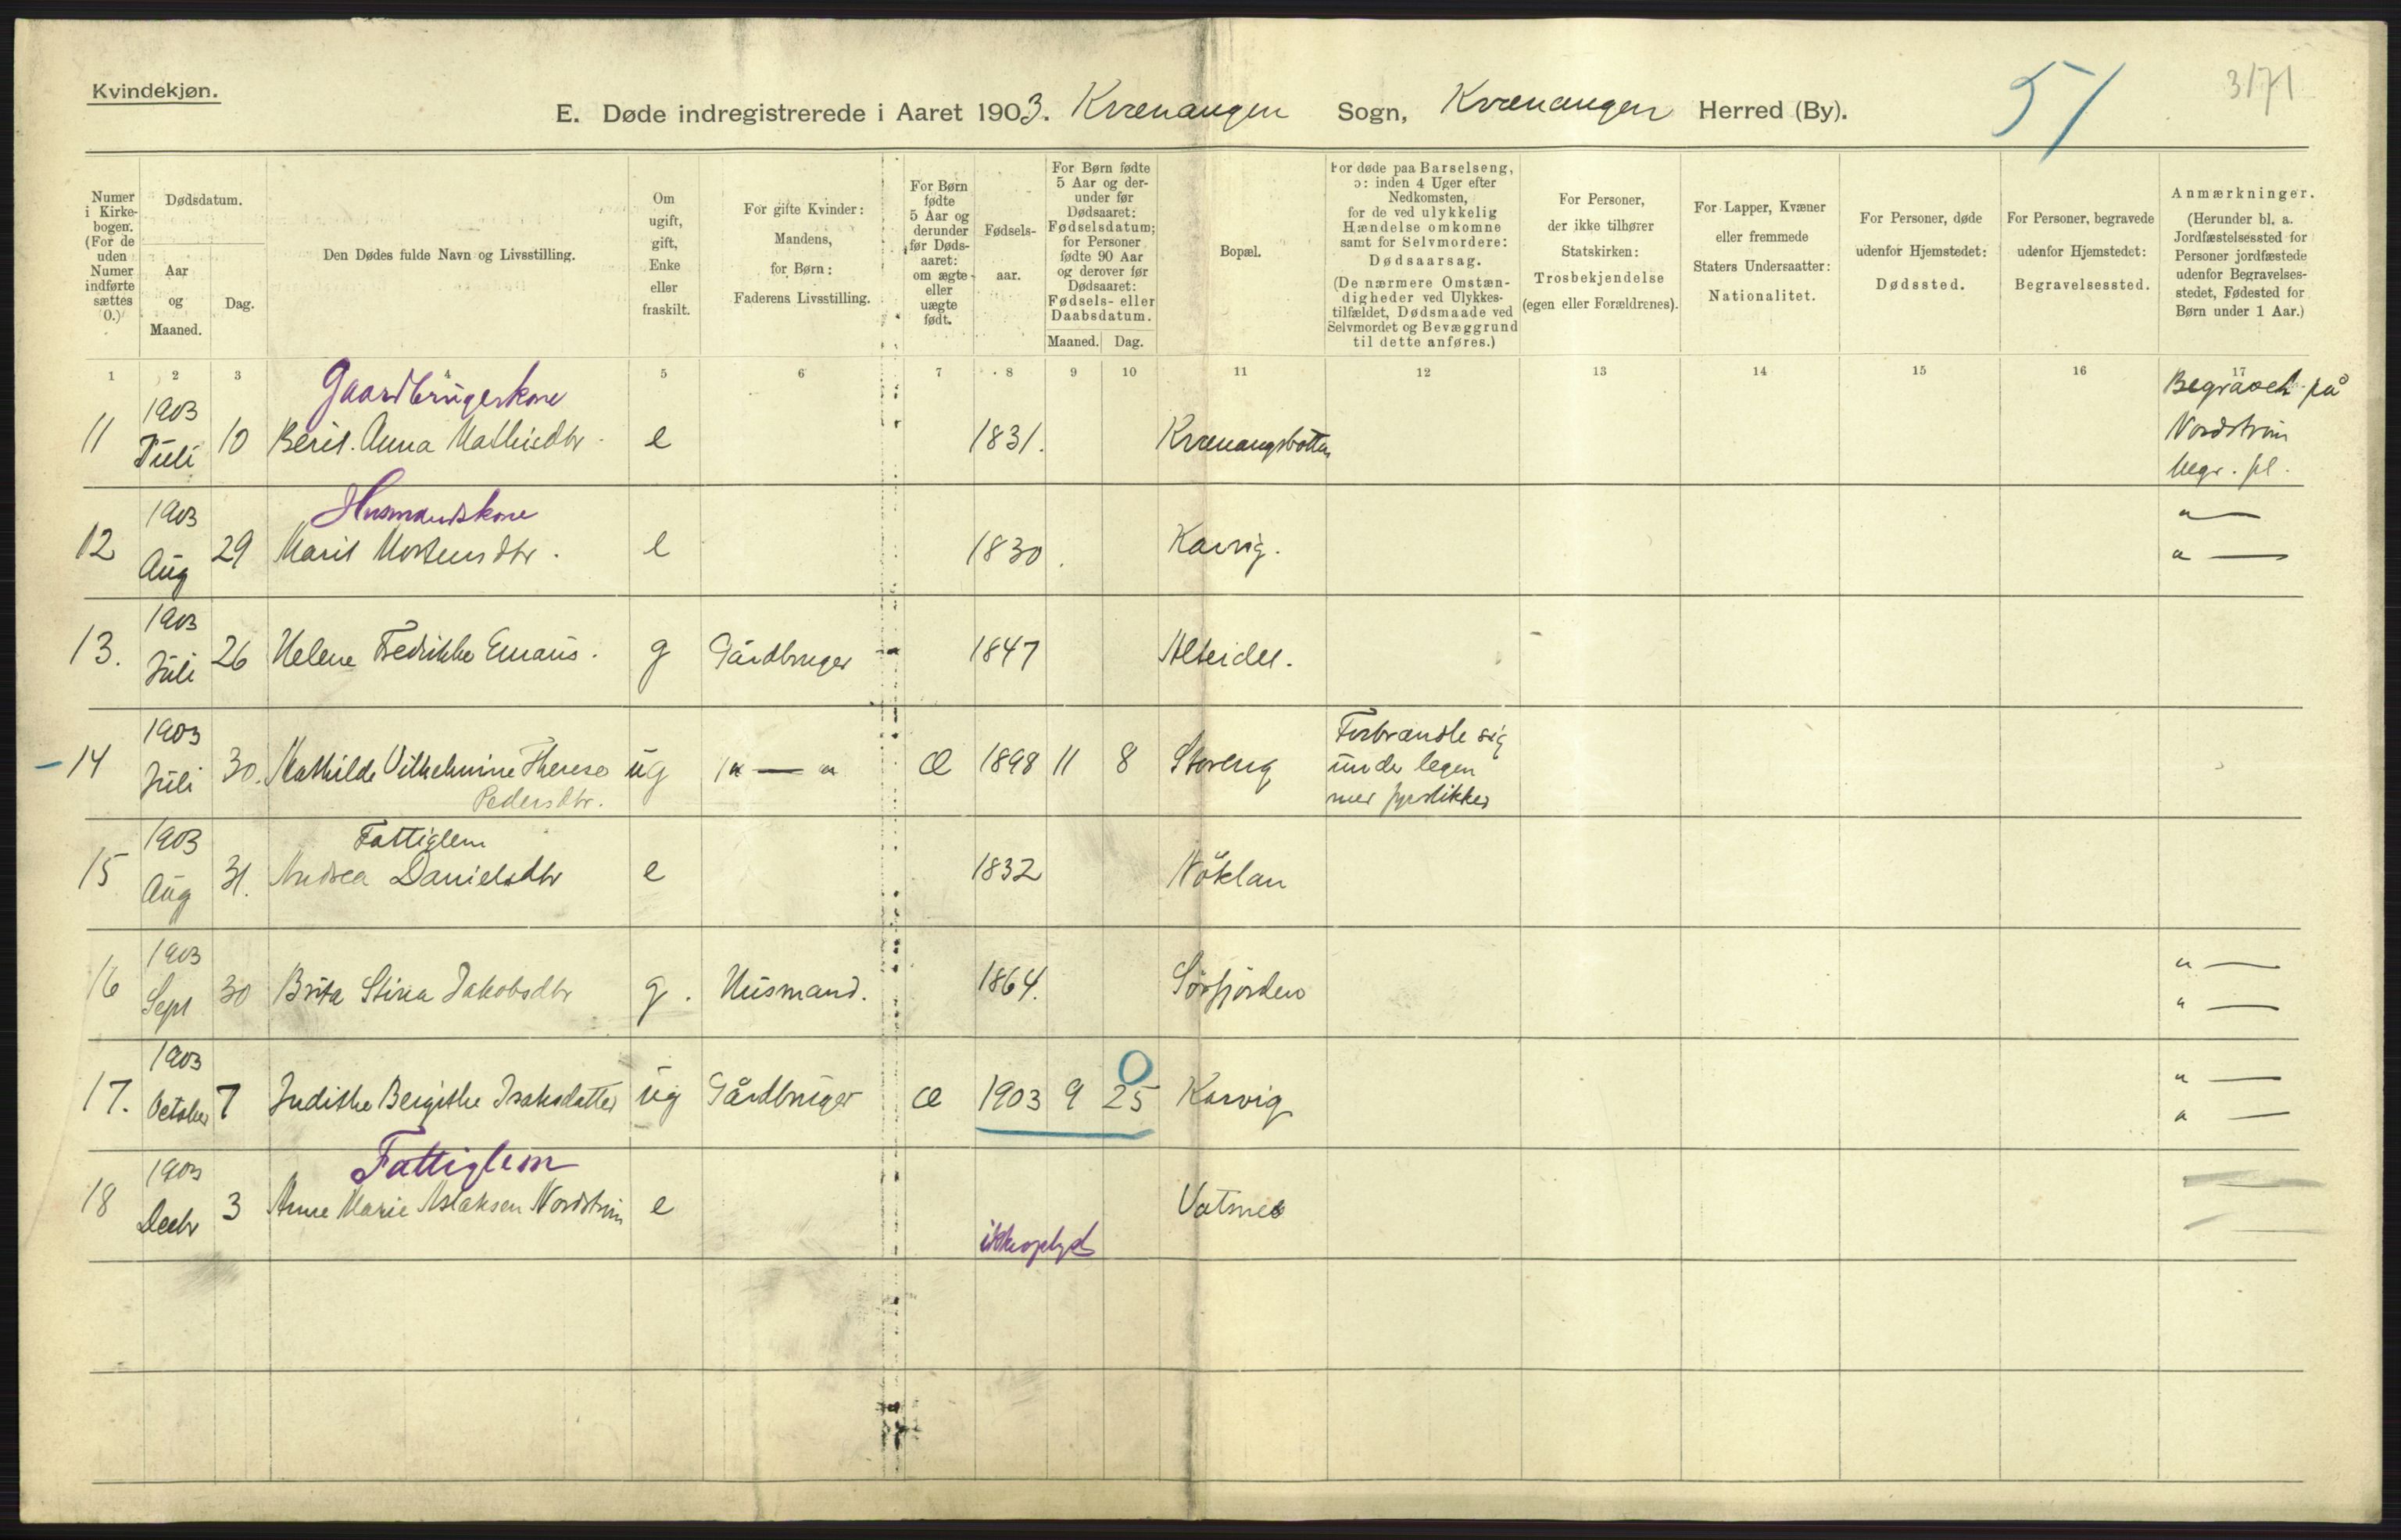 Kvindekjøn.
E. Døde indregistrerede i Aaret 1903. Kvænangen Sogn, Kvænangen Herred (By).
51
3171
Numer i Kirke-bogen. (For de uden Numer indførte sættes 0.)
Dødsdatum.
Aar og Maaned.
Dag.
Den Dødes fulde Navn og Livsstilling.
Om ugift, gift, Enke eller fraskilt.
For gifte Kvinder: Mandens, for Børn: Faderens Livsstilling.
For Børn fødte 5 Aar og derunder før Døds-aaret: om ægte eller uægte født.
Fødsels-aar.
For Børn fødte 5 Aar og der-under før Dødsaaret: Fødselsdatum; for Personer fødte 90 Aar og derover før Dødsaaret: Fødsels- eller Daabsdatum.
Maaned. Dag.
Bopæl.
For døde paa Barselseng, ɔ: inden 4 Uger efter Nedkomsten, for de ved ulykkelig Hændelse omkomne samt for Selvmordere: Dødsaarsag. (De nærmere Omstæn-digheder ved Ulykkes-tilfældet, Dødsmaade ved Selvmordet og Bevæggrund til dette anføres.)
For Personer, der ikke tilhører Statskirken: Trosbekjendelse (egen eller Forældrenes).
For Lapper, Kvæner eller fremmede Staters Undersaatter: Nationalitet.
For Personer, døde udenfor Hjemstedet: Dødssted.
For Personer, begravede udenfor Hjemstedet: Begravelsessted.
Anmærkninger. (Herunder bl. a. Jordfæstelsessted for Personer jordfæstede udenfor Begravelses-stedet, Fødested for Børn under 1 Aar.)
1 2 3 4 5 6 7 8 9 10 11 12 13 14 15 16 17
Gaardbrugerkone
11 1903 Juli 10 Berit Anna Mathisdtr e 1831. Kvænangsbotten Begravet på Nordstrøm begr. pl.
Husmandskone
12 1903 Aug 29 Marit Mortensdtr. e 1830. Karvig. " — " —
13. 1903 Juli 26 Helene Fredrikke Emaus. g Gårdbruger 1847 Alteidet.
14 1903 Juli 30. Mathilde Vilhelmine Therese Pedersdtr. ug " — " Æ 1898 11 8 Storeng Forbrændte sig under legen med fyrstikker
Fattiglem
15 1903 Aug 31. Andrea Danielsdtr e 1832 Nöklan
16 1903 Sept 30 Brita Stina Jakobsdtr g. Husmand. 1864. Sörfjorden " — " —
17. 1903 October 7 Judithe Bergithe Isaksdatter ug Gårdbruger Æ 1903 9 25 0 Karvig " — " —
Fattiglem
18 1903 Decbr 3 Anne Marie Aslaksen Nordstrøm e ikke oplyst Vatnes